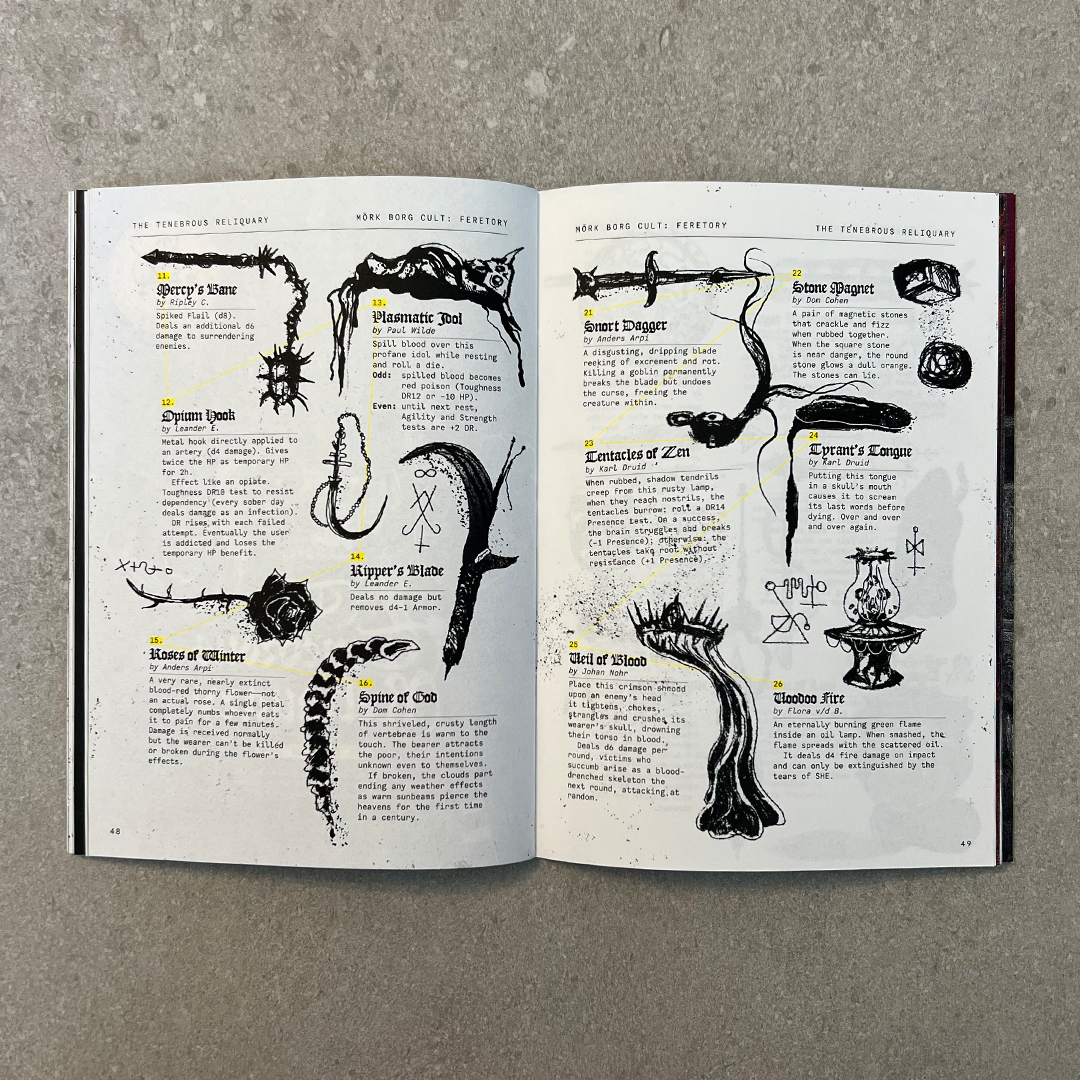 THE TENEBROUS RELIQUARY
MÖRK BORG CULT: FERETORY
11.
Mercy's Bane
by Ripley C.
Spiked Flail (d8).
Deals an additional d6
damage to surrendering
enemies.
12.
Opium Hook
by Leander E.
Metal hook directly applied to
an artery (d4 damage). Gives
twice the HP as temporary HP
for 2h.
Effect like an opiate.
Toughness DR10 test to resist
dependency (every sober day
deals damage as an infection).
DR rises with each failed
attempt. Eventually the user
is addicted and loses the
temporary HP benefit.
13.
Plasmatic Idol
by Paul Wilde
Spill blood over this
profane idol while resting
and roll a die.
Odd: spilled blood becomes
red poison (Toughness
DR12 or -10 HP).
Even: until next rest,
Agility and Strength
tests are +2 DR.
14.
Ripper's Blade
by Leander E.
Deals no damage but
removes d4-1 Armor.
15.
Roses of Winter
by Anders Arpi
A very rare, nearly extinct
blood-red thorny flower—not
an actual rose. A single petal
completely numbs whoever eats
it to pain for a few minutes.
Damage is received normally
but the wearer can't be killed
or broken during the flower's
effects.
16.
Spine of God
by Dom Cohen
This shriveled, crusty length
of vertebrae is warm to the
touch. The bearer attracts
the poor, their intentions
unknown even to themselves.
If broken, the clouds part
ending any weather effects
as warm sunbeams pierce the
heavens for the first time
in a century.
48
MÖRK BORG CULT: FERETORY
THE TENEBROUS RELIQUARY
21
Snort Dagger
by Anders Arpi
A disgusting, dripping blade
reeking of excrement and rot.
Killing a goblin permanently
breaks the blade but undoes
the curse, freeing the
creature within.
22
Stone Magnet
by Dom Cohen
A pair of magnetic stones
that crackle and fizz
when rubbed together.
When the square stone
is near danger, the round
stone glows a dull orange.
The stones can lie.
23
Tentacles of Zen
by Karl Druid
When rubbed, shadow tendrils
creep from this rusty lamp,
when they reach nostrils, the
tentacles burrow: roll a DR14
Presence test. On a success,
the brain struggles and breaks
(-1 Presence); otherwise: the
tentacles take root without
resistance (+1 Presence).
24
Tyrant's Tongue
by Karl Druid
Putting this tongue
in a skull's mouth
causes it to scream
its last words before
dying. Over and over
and over again.
25
Veil of Blood
by Johan Nohr
Place this crimson shroud
upon an enemy's head
it tightens, chokes,
strangles and crushes its
wearer's skull, drowning
their torso in blood.
Deals d6 damage per
round, victims who
succumb arise as a blood-
drenched skeleton the
next round, attacking at
random.
26
Voodoo Fire
by Flora v/d B.
An eternally burning green flame
inside an oil lamp. When smashed, the
flame spreads with the scattered oil.
It deals d4 fire damage on impact
and can only be extinguished by the
tears of SHE.
49